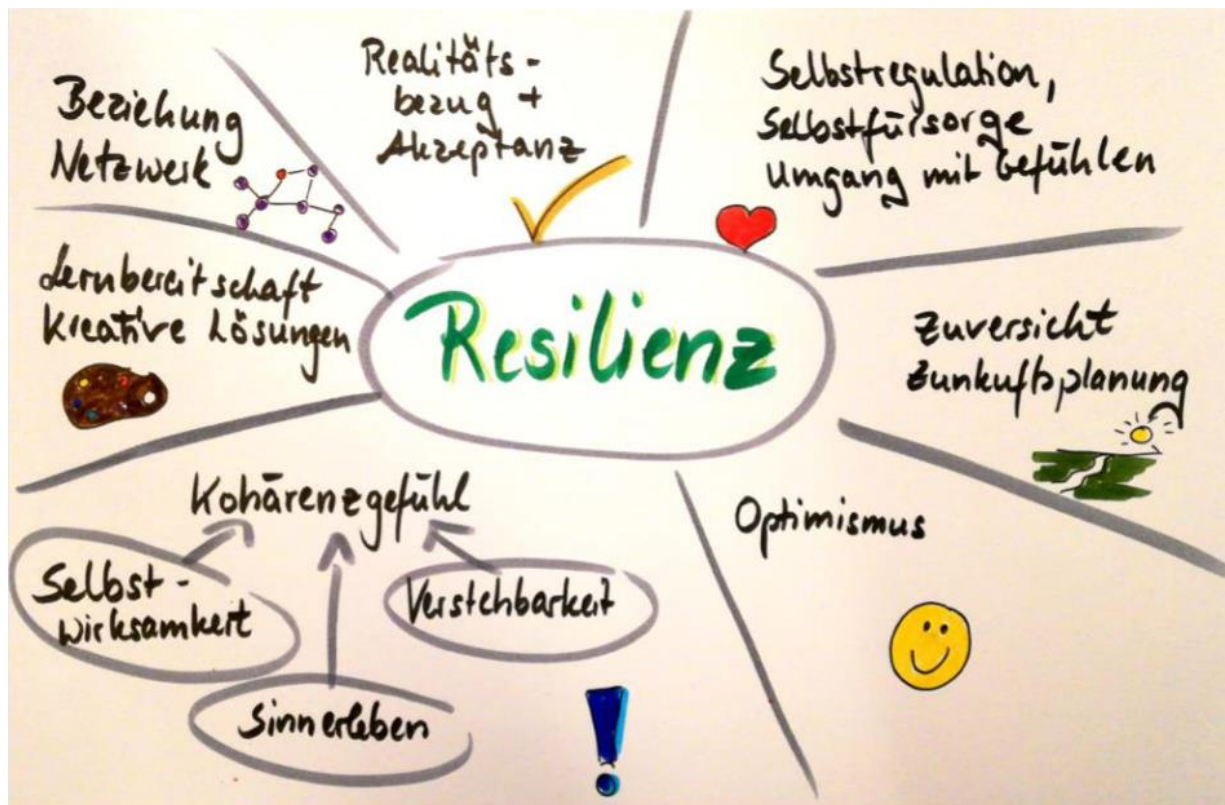 Beziehung
Netzwerk
Realitäts-
bezug +
Akzeptanz
Selbstregulation,
Selbstfürsorge
Umgang mit Gefühlen
Lernbereitschaft
Kreative Lösungen
Resilienz
Zuversicht
Zunkuftsplanung
Kohärenzgefühl
Selbst-
wirksamkeit
Verstehbarkeit
Sinnerleben
Optimismus
!